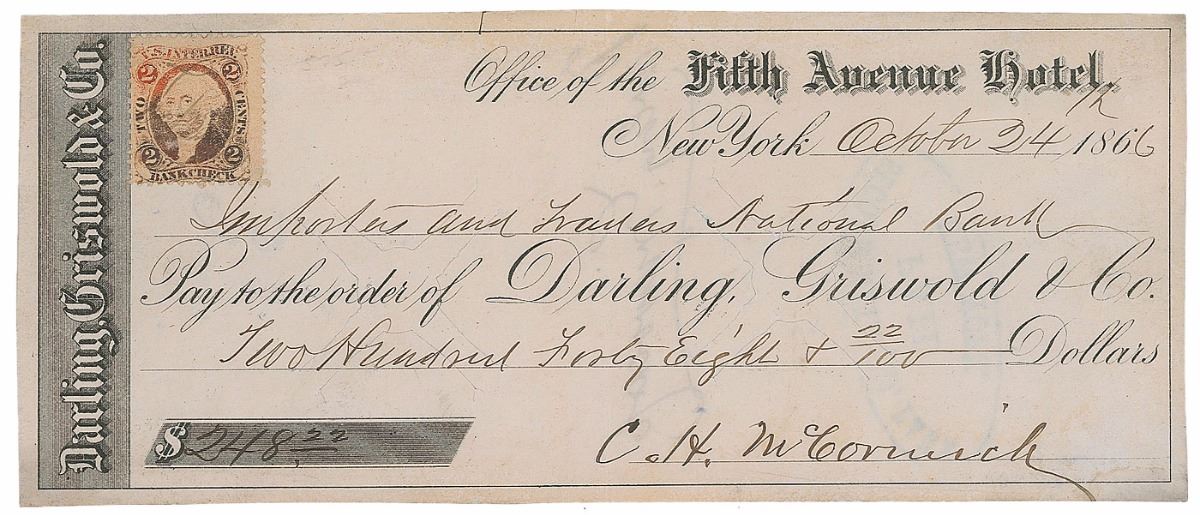 Darling, Griswold & Co.
U.S. INTER. REV.
2 2
TWO CENTS
2 2
BANK CHECK
Office of the Fifth Avenue Hotel,
New York October 24th 1866
Importers and Traders National Bank
Pay to the order of Darling, Griswold & Co.
Two Hundred Forty Eight & 22/100 Dollars
$ 248.22
C. H. McCormick